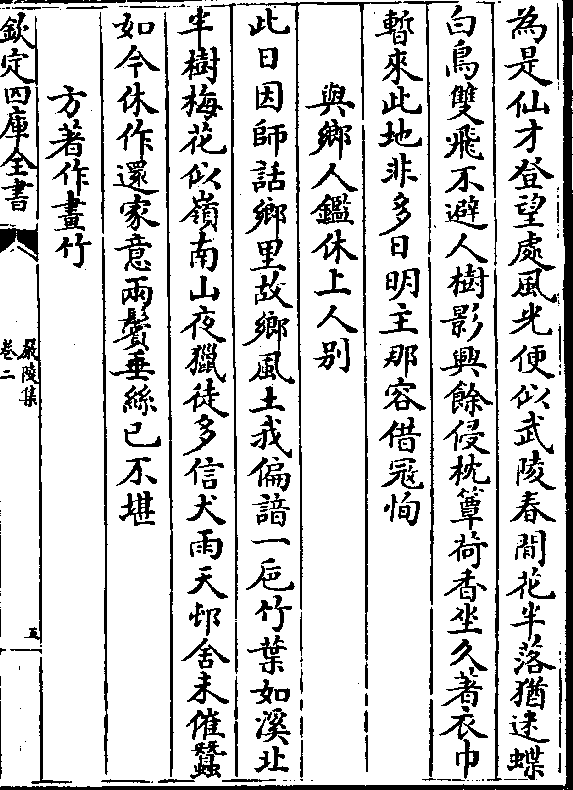 為是仙才登望處風光便似武陵春閒花半落猶迷蝶
白鳥雙飛不避人樹影興餘侵枕簟荷香坐久著衣巾
暫來此地非多日明主那容借冦恂
與鄉人鑑休上人别
此日因師話鄉里故鄉風土我偏諳一巵竹葉如溪北
半樹梅花似嶺南山夜獵徒多信犬雨天邨舍未催蠶
如今休作還家意兩鬢垂絲已不堪
方著作畫竹
欽定四庫全書
嚴陵集
卷二
五